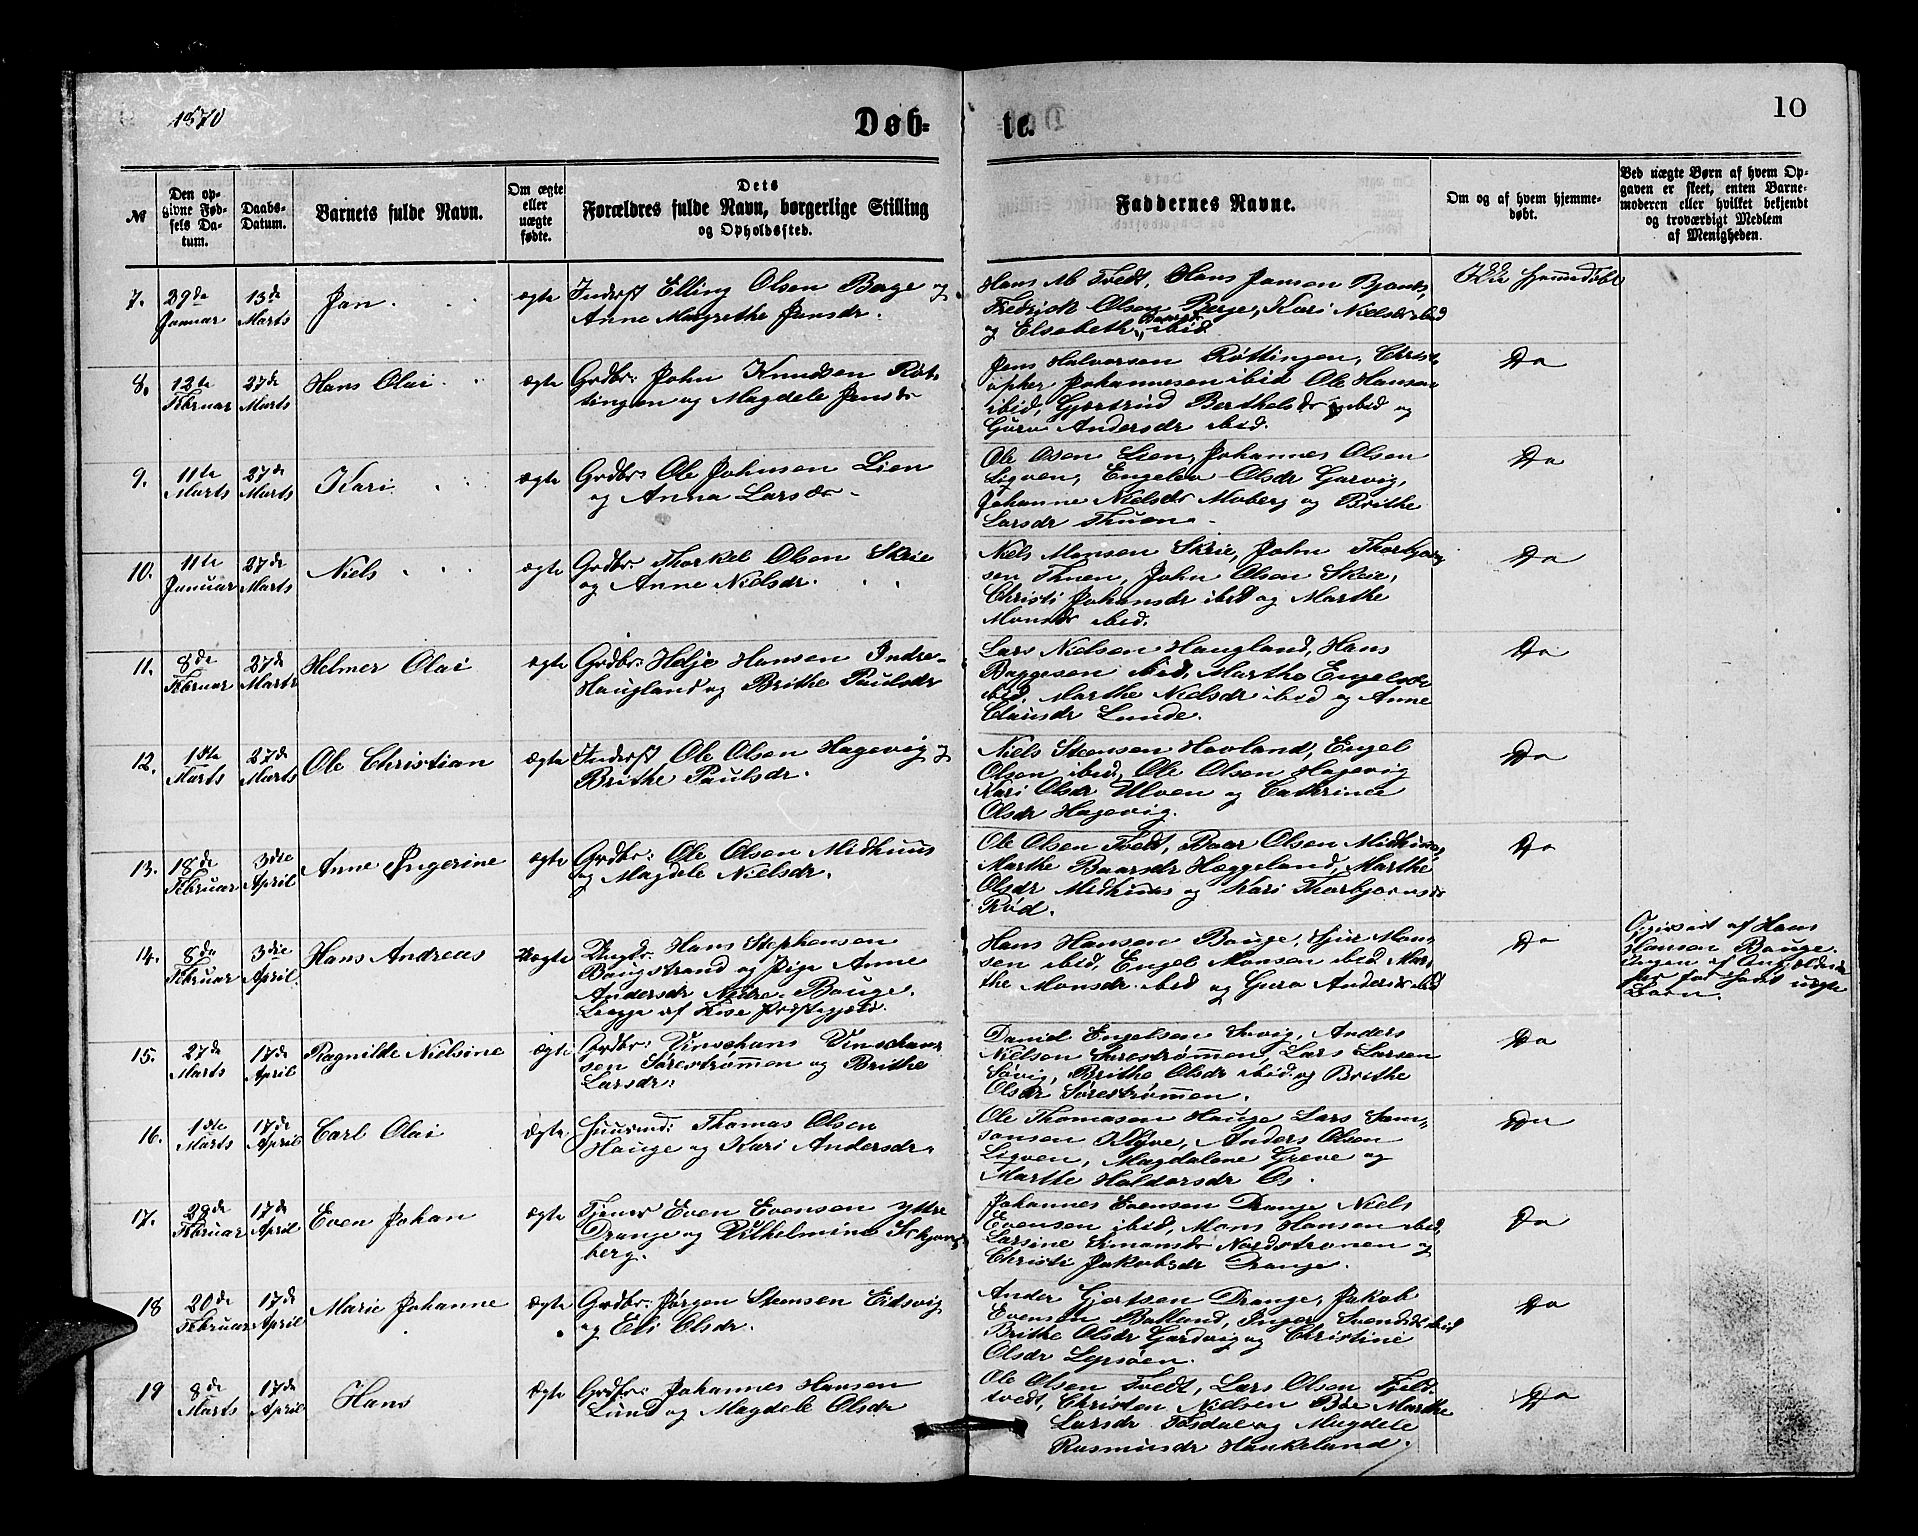 1870
Døb-
te.
10
№
Den op-
givne Fød-
sels Da-
tum.
Daabs-
Datum.
Barnets fulde Navn.
Om ægte
eller
uægte
fødte.
Dets
Forældres fulde Navn, borgerlige Stilling
og Opholdssted.
Faddernes Navne.
Om og af hvem hjemme-
døbt.
Ved uægte Børn af hvem Op-
gaven er skeet, enten Barne-
moderen eller hvilket bekjendt
og troværdigt Medlem
af Menigheden.
7.
29de
Januar
13de
Marts
Jan.
ægte
Inderst Elling Olsen Bage og
Anne Margrethe Jansdr.
Hans M Tvedt, Hans Jansen
Fredrick Olsen Berge, Kari Nielsdr ibid
og Elsebeth ibid
Ikke hjemmedøbt
8.
12te
Februar
27de
Marts
Hans Olai
ægte
Grdbr: John Knudsen Røt-
tingen og Magdele Jensdr
Jens Halvorsen Røttingen, Christ-
opher Johannesen ibid Ole Hansen
ibid, Gjertrud Berthelsdr ibid og
Guro Andersdr ibid.
Do
9.
11te
Marts
27de
Marts
Kari
ægte
Grdbr: Ole Johnsen Lien
og Anna Larsdr
Ole Osen Lien, Johannes Olsen
Ligven, Engelev Olsdr Garvig,
Johanne Nielsdr Moberg og Brithe
Larsdr Thuen
Do
10.
11te
Januar
27de
Marts
Niels
ægte
Grdbr Thorkel Olsen Skeie
og Anne Nielsdr.
Niels Monsen Skeie, John Thorbjørn
sen Thuen, John Olsen Skeie,
Christi Johansdr ibid og Marthe
Monsdr ibid.
Do
11.
8de
Februar
27de
Marts
Helmer Olai
ægte
Grdbr: Helje Hansen Indre-
Haugland og Brithe Paulsdr
Lars Nielsen Haugland, Hans
Baggesen ibid, Marthe Engelsdr
ibid, Marthe Nielsdr ibid og Anne
Clausdr Lunde.
Do
12.
1ste
Marts
27de
Marts
Ole Christian
ægte
Inderst Ole Olsen Hagevig og
Brithe Paulsdr.
Niels Steensen Hovland, Engel
Olsen ibid, Ole Olsen Hagevig
Kari Olsdr Ulven og Cathrine
Olsdr Hagevig.
Do
13.
18de
Februar
3die
April
Anne Ingerine
ægte
Grdbr: Ole Olsen Midhuus
og Magdele Nielsdr.
Ole Olsen Tvedt, Baar Olsen Midhuus,
Marthe Baarsdr Hæggeland, Marthe
Olsdr Midhuus og Kari Thorbjørnsdr
Rød.
Do
14.
8de
Februar
3die
April
Hans Andreas
Uægte
Ungkr. Hans Stephensen
Baugstrand og Pige Anne
Andersdr Nedre Bauge.
Begge af Fuse Præstegjeld.
Hans Hansen Bauge, Sjur Mon-
sen ibid, Engel Monsen ibid Mar-
the Monsdr ibid og Guro Andersdr ibid
Do
Opgivet af Hans
Hansen Bauge.
Ingen af
før
Børn.
15.
27de
Marts
17de
April
Ragnilde Nielsine
ægte
Grdbr: Vinschans Vinschan-
sen Sørestrømmen og Brithe
Larsdr:
Daniel Engelsen Søvig, Anders
Nielsen Sørestrømmen, Lars Larsen
Søvig, Brithe Olsdr ibid og Brithe
Olsdr Sørestrømmen.
Do
16.
1ste
Marts
17de
April
Carl Olai
ægte
Huusmd: Thomas Olsen
Hauge og Kari Andersdr.
Ole Thomasen Hauge Lars Sam-
sonsen Klyve, Anders Olsen
Ligven, Magdalene Greve og
Marthe Haldorsdr Os.
Do
17.
28de
Februar
17de
April
Even Johan
ægte
Tjener Even Evensen Yttre
Drange og Vilhelmine
berg.
Johannes Evensen Drange Niels
Evensen ibid, Mons Hansen ibid,
Larsine Simonsdr Nordstrømen og
Christi Jakobsdr Drange.
Do
18
20de
Februar
17de
April
Marie Johanne
ægte
Grdbr: Jørgen Steensen Eidsvig
og Eli Olsdr.
Ander Gjertsen Drange, Jakob
Evensen Balland, Inger Svendsdr ibid
Brithe Olsdr Gardvig og Christine
Olsdr Lysøen.
Do
19
8de
Marts
17de
April
Hans
Ægte
Grdbr: Johannes Hansen
Lund og Magdele Olsdr
Ole Olsen Tvedt, Lars Olsen Fjeld-
tvedt, Christen Nielsen Bøe Marthe
Larsdr Tøsdal og Magdele
Rasmusdr Haukeland.
Do